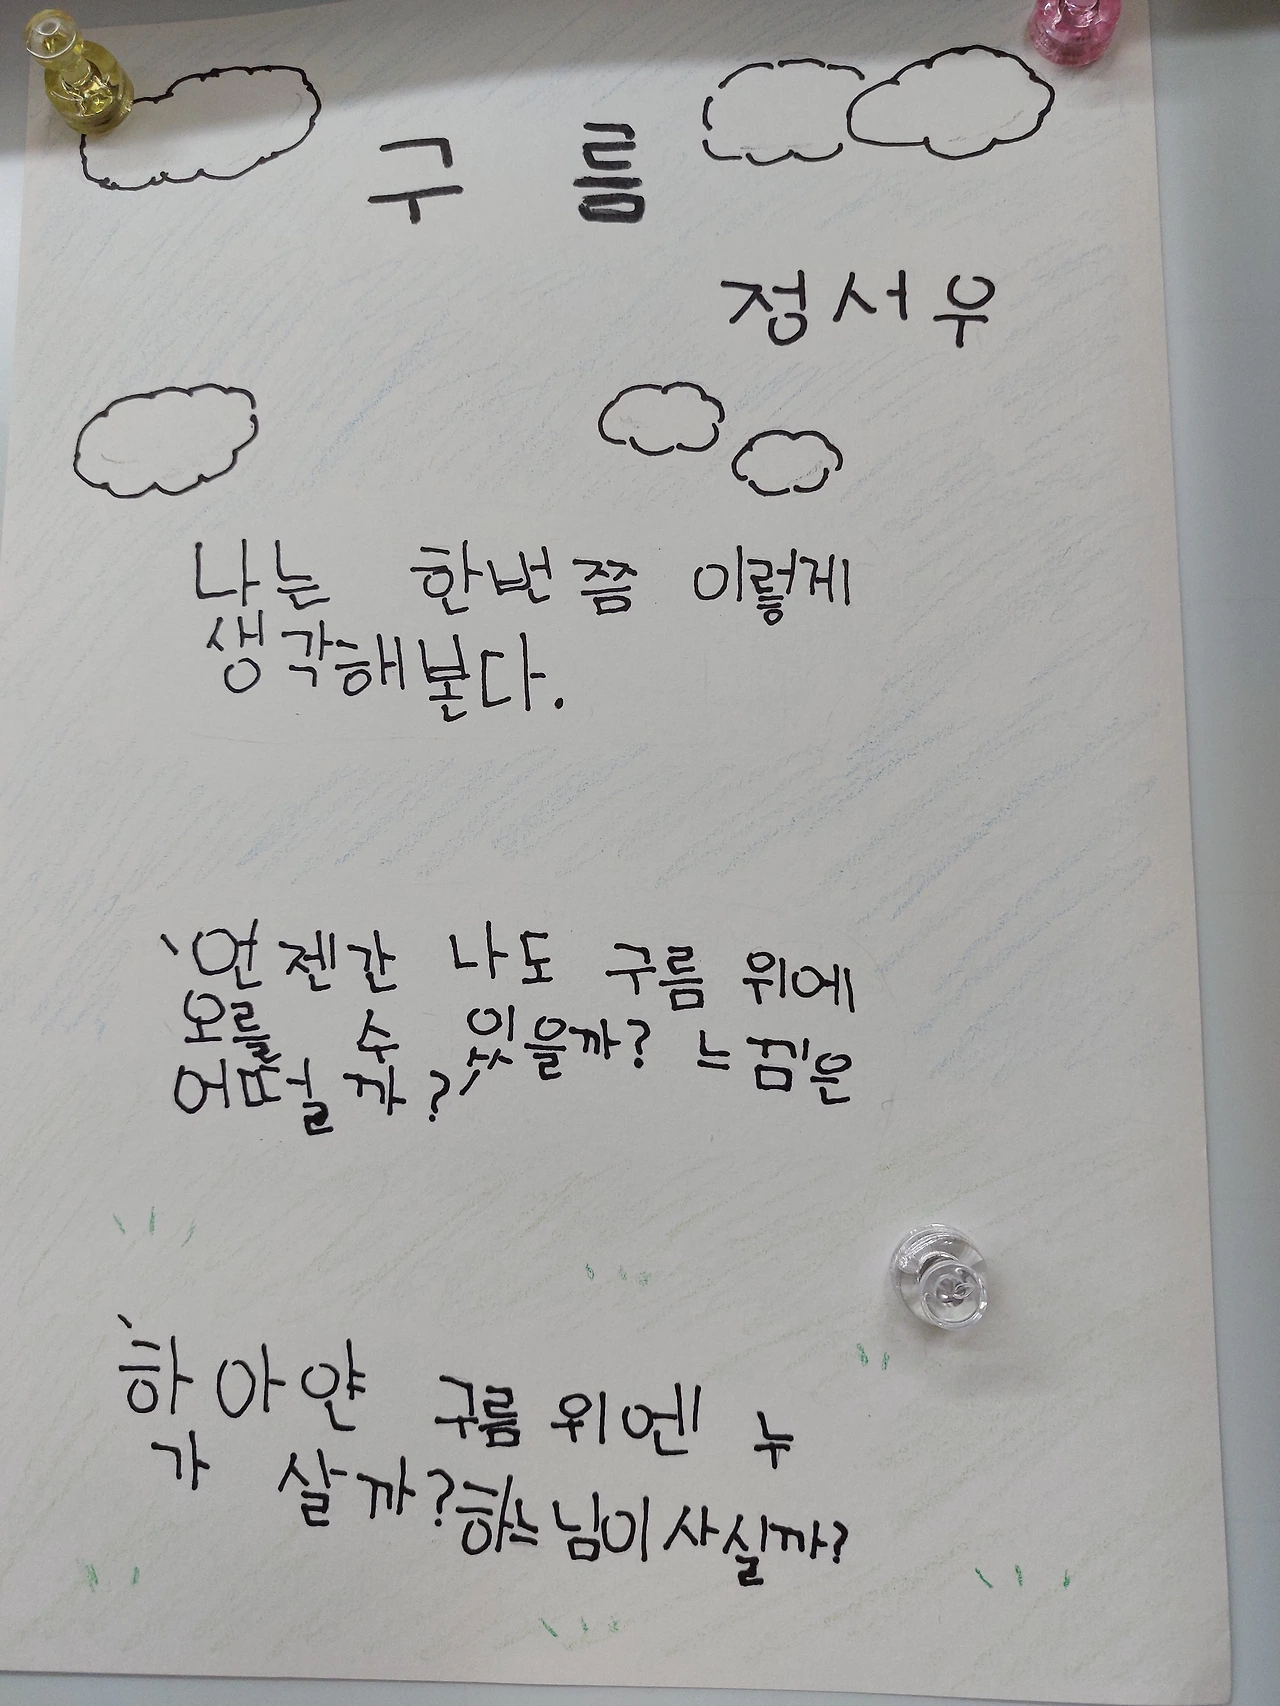 구 름
정서우
나는 한번쯤 이렇게
생각해본다.
'언젠간 나도 구름 위에
오를 수 있을까? 느낌은
어떠설까?'
'하아얀 구름 위엔 누
가 살까? 하느님이 사실까?